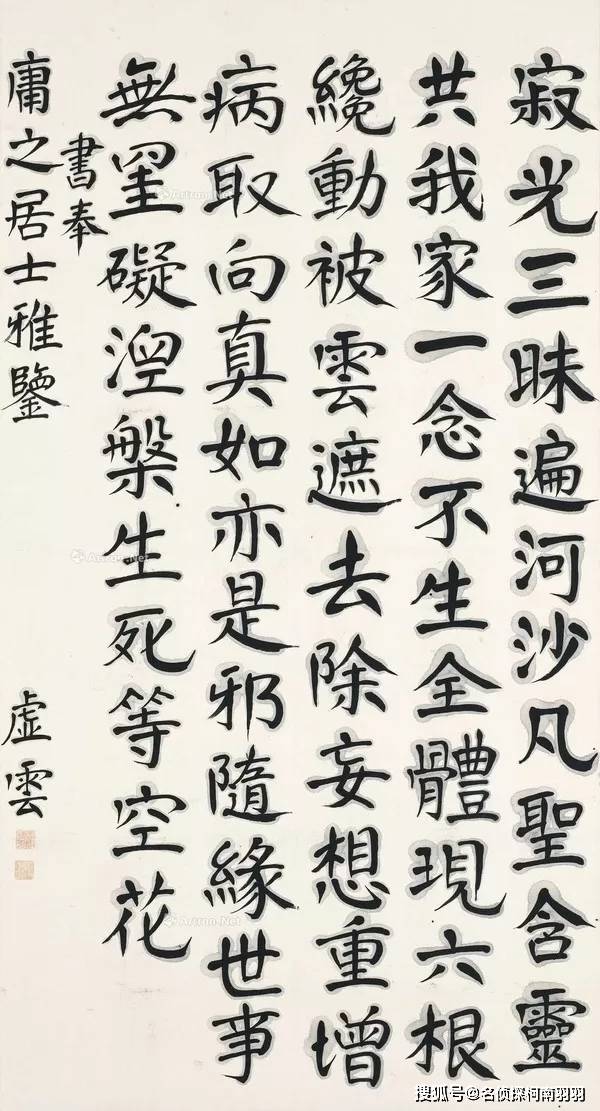 寂光三昧遍河沙凡聖含靈
共我家一念不生全體現六根
纔動被雲遮去除妄想重增
病取向真如亦是邪隨緣世事
無罣礙涅槃生死等空花
書奉
庸之居士雅鑒
虛雲
Artron.Net
Artron.Net
Artron.Net
搜狐号@名侦探柯南羽羽